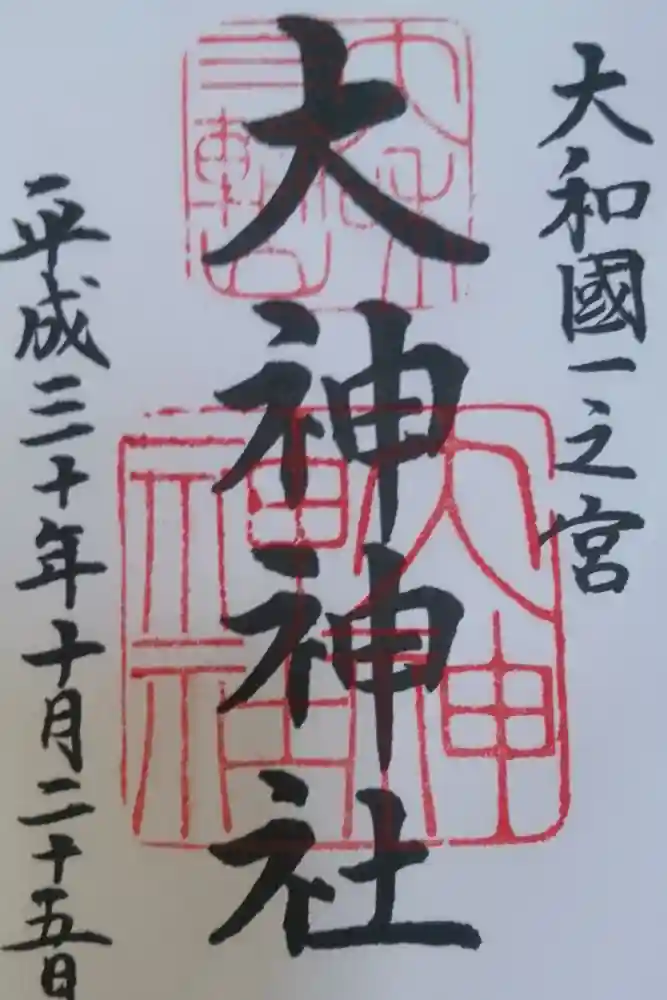 大和國一之宮
大神神社
平成三十年十月二十五日
大神
神社